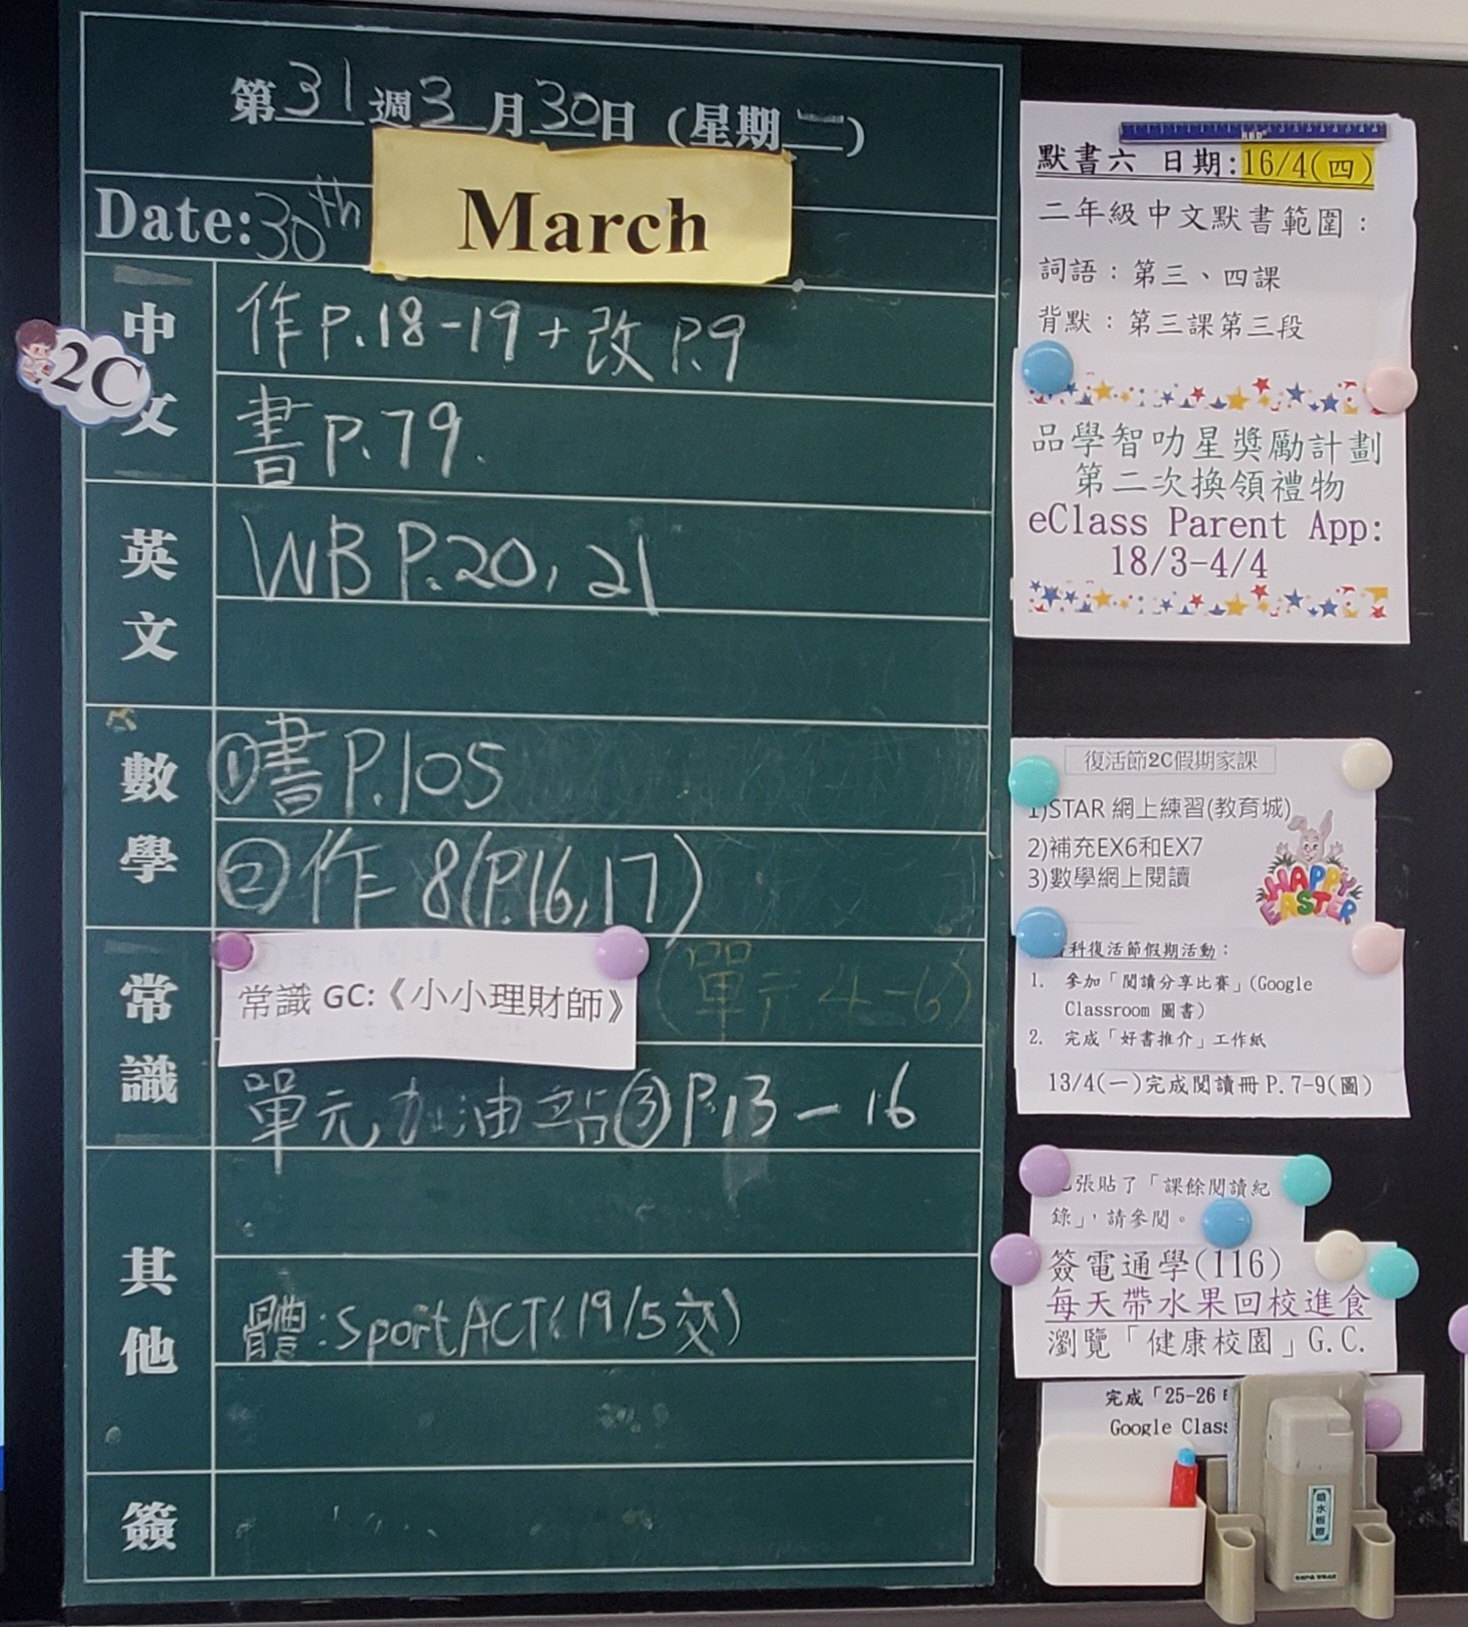 第31週3月30日(星期二)
Date:30th March
2C
中文
作P.18-19+改P.9
書P.79
英文
WB P.20,21
數學
①書P.105
②作8(P.16,17)
常識
常識 GC:《小小理財師》
(單元4-6)
單元加油站③P.13-16
其他
體:Sport ACT(19/5交)
簽
默書六 日期:16/4(四)
二年級中文默書範圍:
詞語:第三、四課
背默:第三課第三段
品學智叻星獎勵計劃
第二次換領禮物
eClass Parent App:
18/3-4/4
復活節2C假期家課
1)STAR 網上練習(教育城)
2)補充EX6和EX7
3)數學網上閱讀
HAPPY
EASTER
科復活節假期活動:
1. 參加「閱讀分享比賽」(Google
Classroom 圖書)
2. 完成「好書推介」工作紙
13/4(一)完成閱讀冊 P.7-9(圖)
張貼了「課餘閱讀紀
錄」,請參閱。
簽電通學(116)
每天帶水果回校進食
瀏覽「健康校園」G.C.
完成「25-26
Google Clas